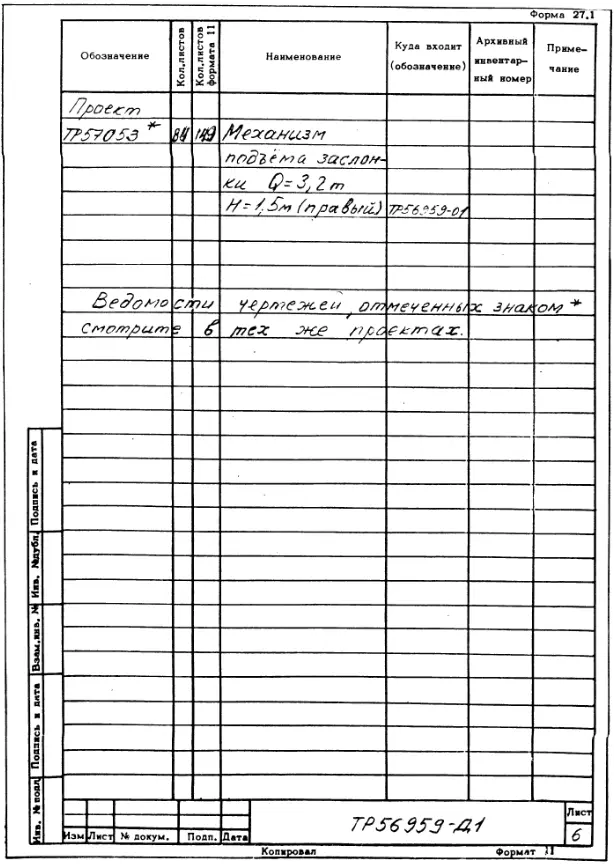 Форма 27.1
Обозначение Кол.листов Кол.листов формата 11 Наименование Куда входит (обозначение) Архивный инвентар- ный номер Приме- чание
Проект
ТР57053 * 84 149 Механизм
подъёма заслон-
ки Q=3,2т
Н=1,5м (правый) ТР56959-01
Ведомости чертежей, отмеченных знаком *
смотрите в тех же проектах.
Подпись и дата
Инв. №дубл.
Взам.инв. №
Подпись и дата
Инв. №подл
ТР56959-Д1
Лист
6
Изм Лист № докум. Подп. Дата
Копировал Формат 11